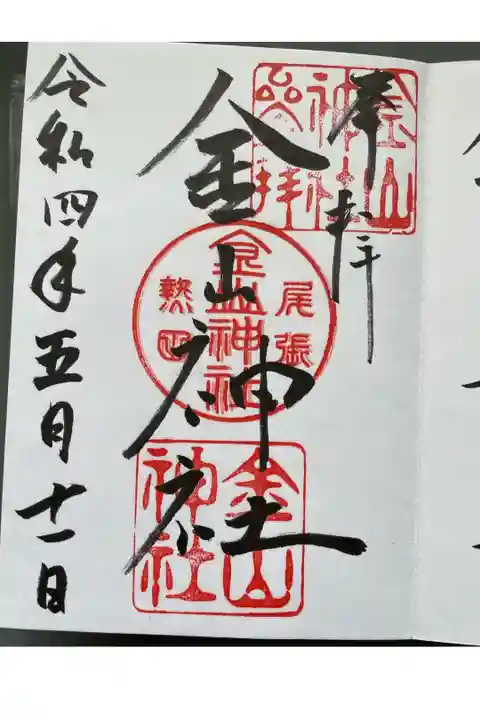 奉拝
金山神社
令和四年五月十一日
金山
神社
尾張
金山神社
熱田
金山
神社